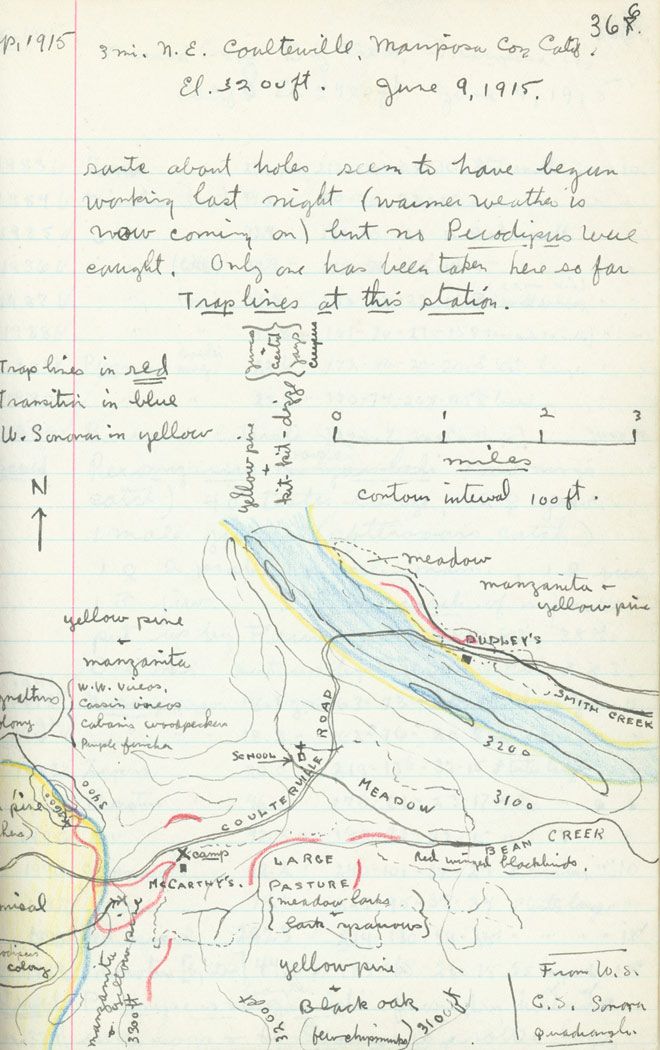 P, 1915
366.
3 mi. N. E. Coulterville, Mariposa Co., Calif.
El. 3200 ft. June 9, 1915.
sante about holes seem to have begun
working last night (warmer weather is
now coming on) but no Perodipus were
caught. Only one has been taken here so far
Trap lines at this station.
Trap lines in red
Transition in blue
W. Sonoran in yellow
yellow pine
+
kit-kit-dizze
jays
creepers
0 1 2 3
miles
contour interval 100 ft.
N
meadow
manzanita +
yellow pine
DUDLEY'S
SMITH CREEK
yellow pine
+
manzanita
W. W. Vireos,
Cassin vireos
Cabanis woodpeckers
Purple finches
gnathus
colony
SCHOOL
COULTERVILLE ROAD
3200
MEADOW
3100
BEAN CREEK
Red winged blackbirds.
3400
3600
pine
X camp
McCARTHY'S.
LARGE
PASTURE
meadow larks
+
lark sparrows
misal
odipus
colony
manzanita
+ yellow pine
3300 ft
yellow pine
+
Black oak
(few chipmunks)
3200 ft
3100 ft
From U. S.
G. S. Sonora
Quadrangle.